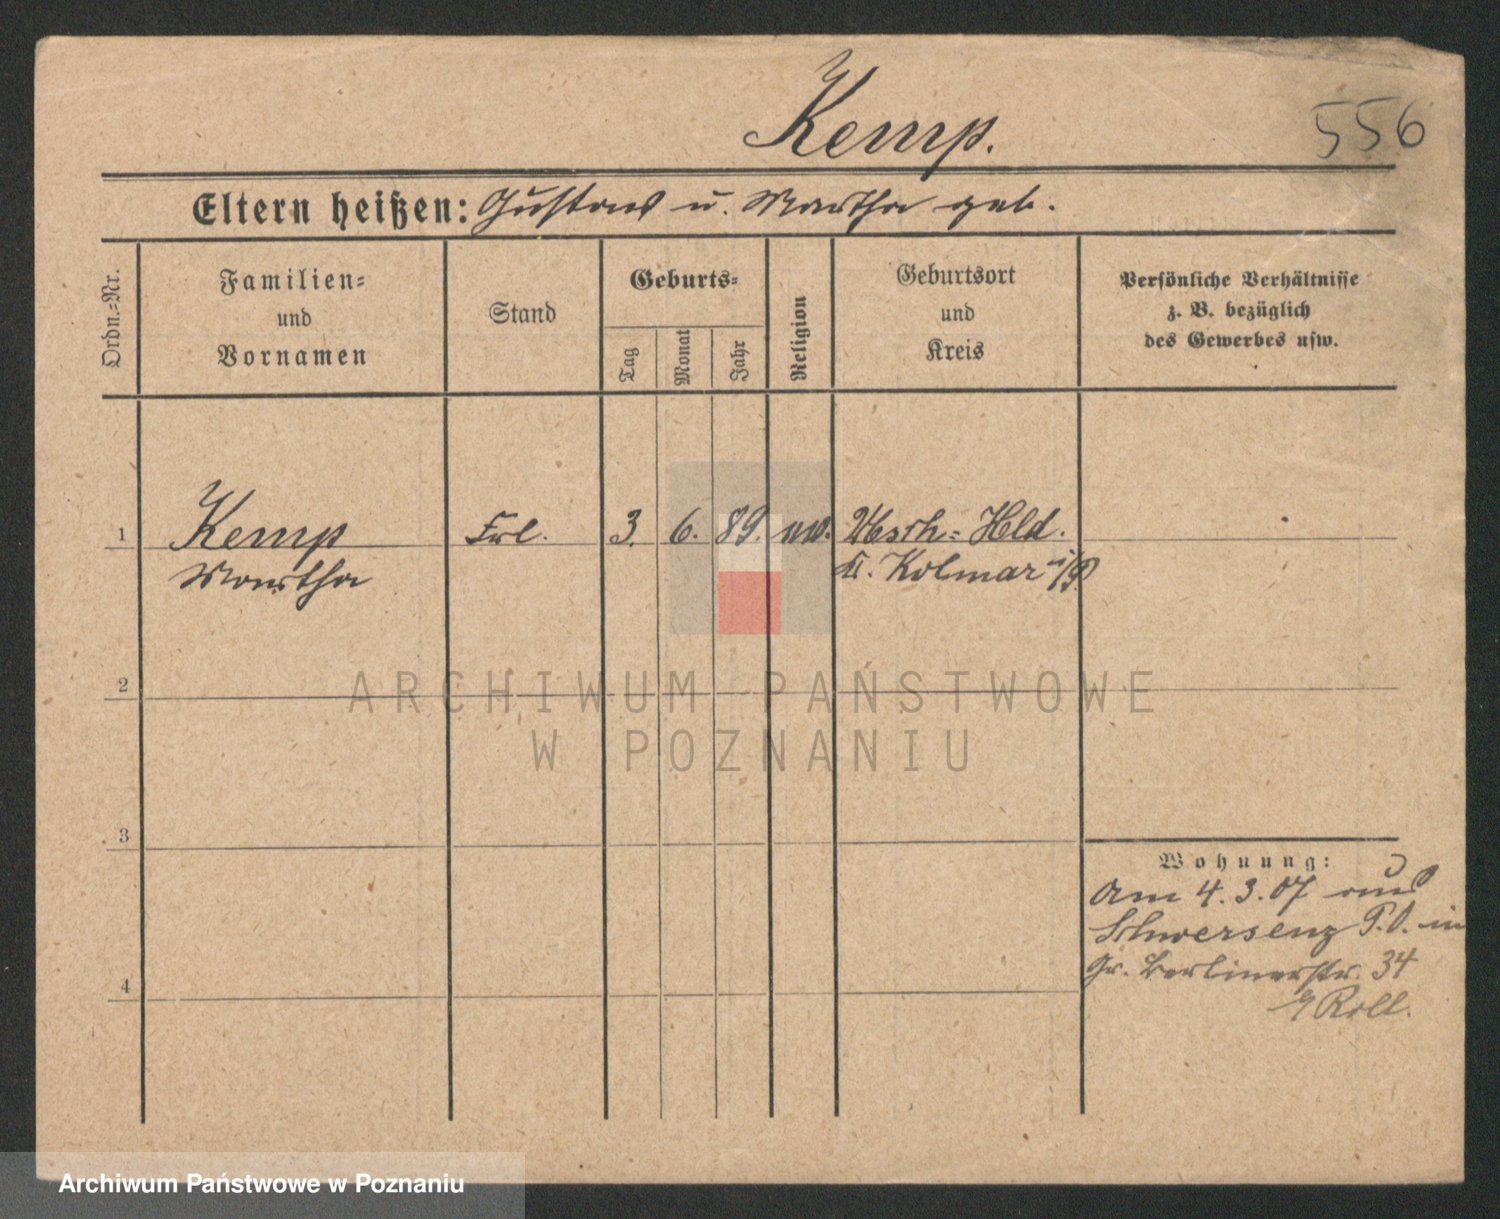 Kemp.
556
Eltern heißen: Gustav u. Martha geb.
Ordn.-Nr.
Familien-
und
Vornamen
Stand
Geburts-
Tag
Monat
Jahr
Religion
Geburtsort
und
Kreis
Persönliche Verhältnisse
z. B. bezüglich
des Gewerbes usw.
1
Kemp
Martha
Frl.
3.
6.
89.
Hld.
K. Kolmar i/P
2
3
4
Wohnung:
Am 4.3.07 aus
Schwersenz P.O. in
Gr. Berlinerstr. 34
Roll.
ARCHIWUM PAŃSTWOWE
W POZNANIU
Archiwum Państwowe w Poznaniu